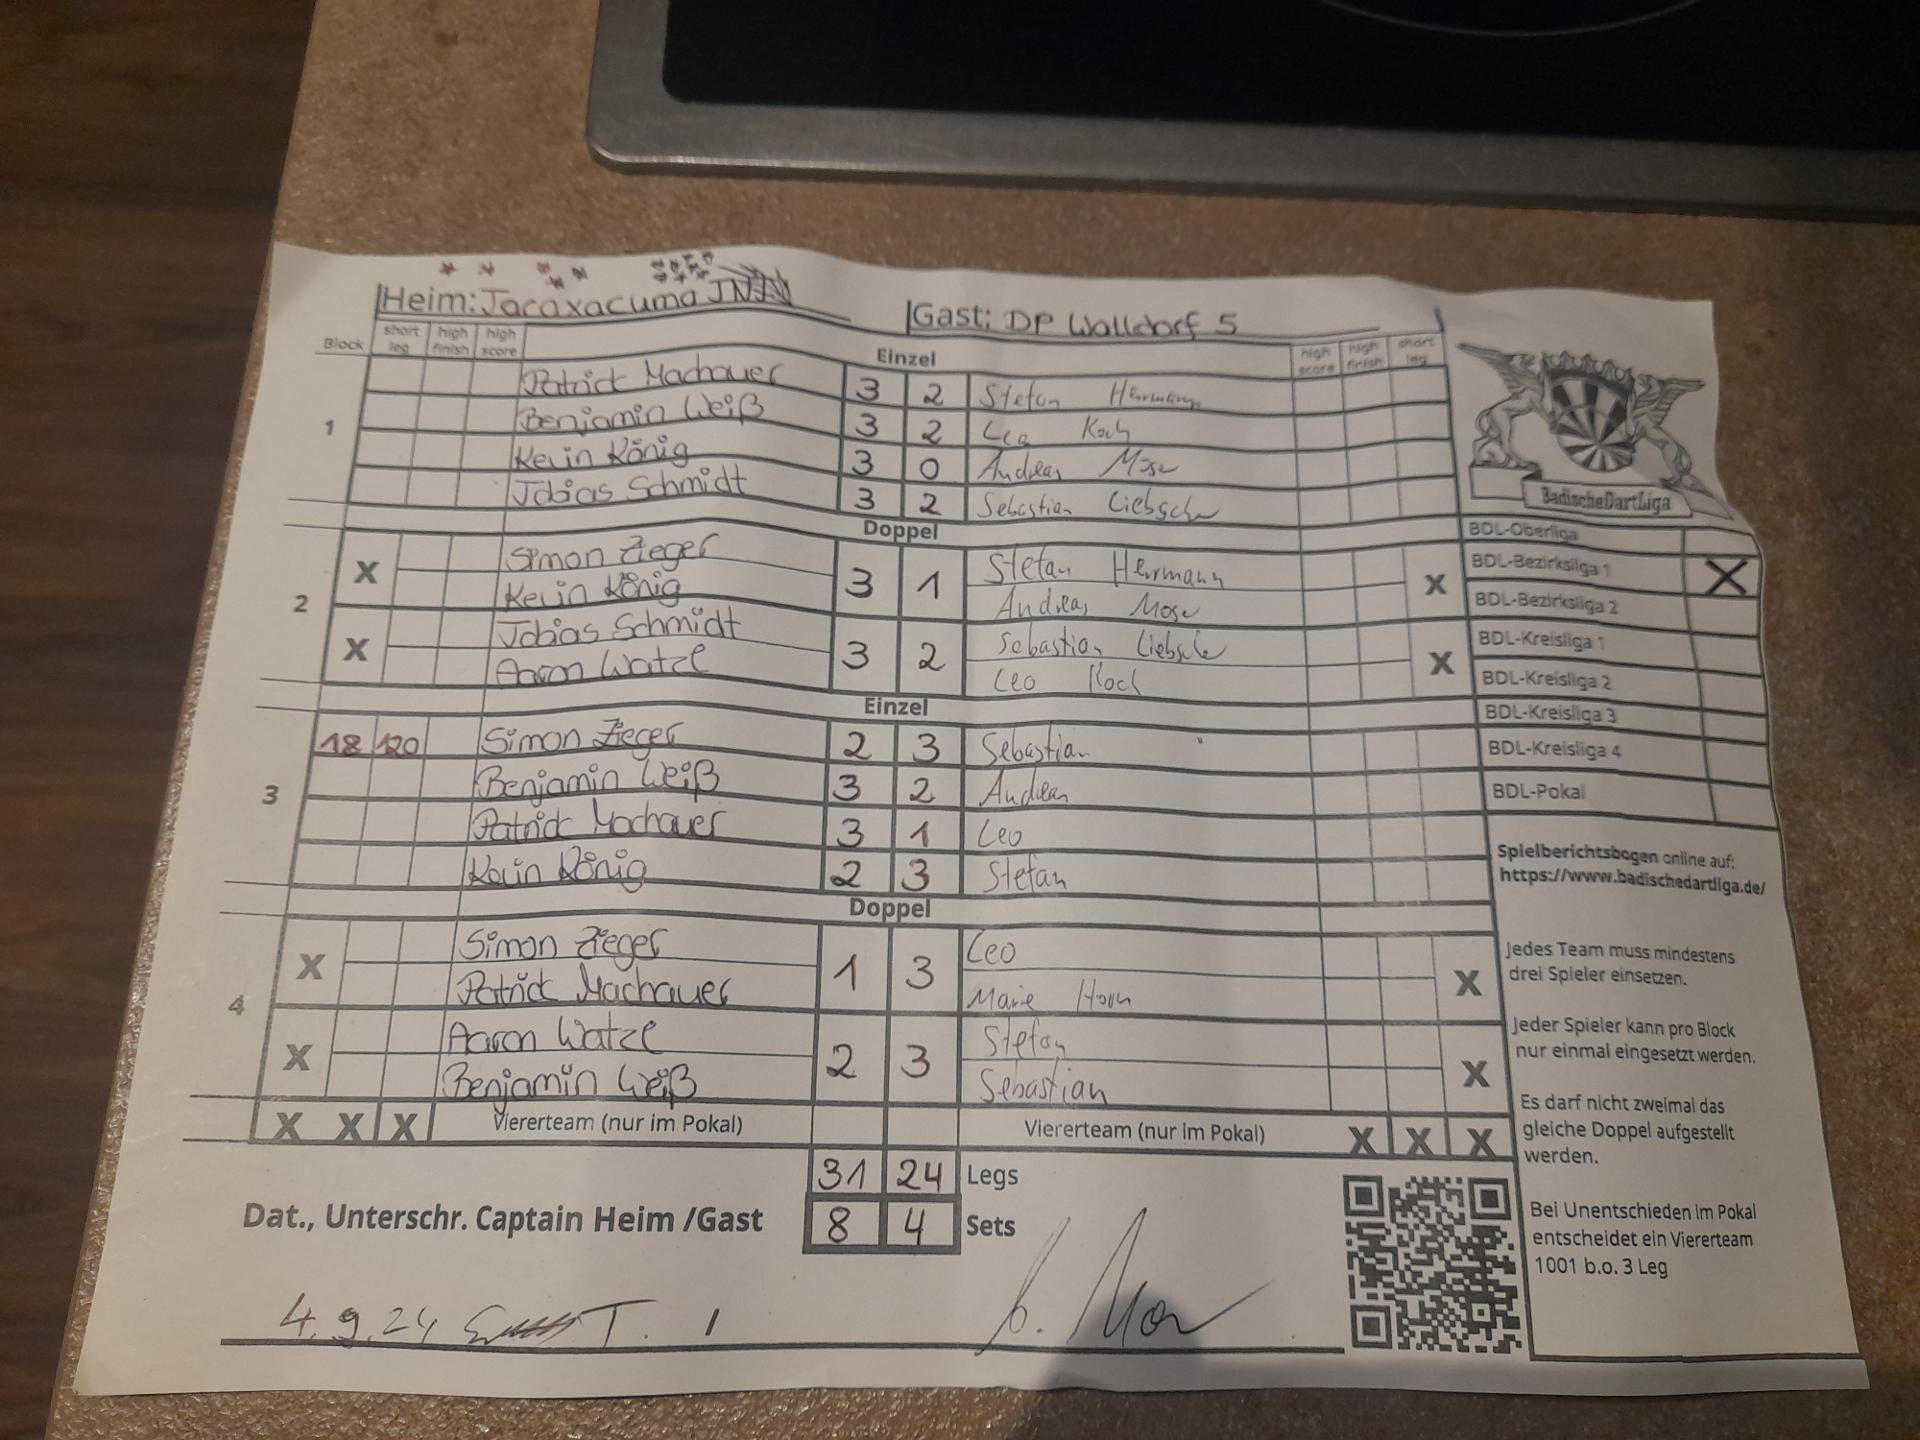 Heim: Jacaxacuma
Gast: DP Walldorf 5
Block short leg high finish high score Einzel high score high finish short leg
1
Patrick Machauer 3 2 Stefan Herrmann
Benjamin Weiß 3 2 Leo Koch
Kevin König 3 0 Andreas Moser
Tobias Schmidt 3 2 Sebastian Liebsche
Doppel
2
X Simon Zieger 3 1 Stefan Herrmann X
Kevin König Andreas Moser
X Tobias Schmidt 3 2 Sebastian Liebsche X
Aaron Watzl Leo Koch
Einzel
3
18 120 Simon Zieger 2 3 Sebastian
Benjamin Weiß 3 2 Andreas
Patrick Machauer 3 1 Leo
Kevin König 2 3 Stefan
Doppel
4
X Simon Zieger 1 3 Leo X
Patrick Machauer Marie Horn
X Aaron Watzl 2 3 Stefan X
Benjamin Weiß Sebastian
X X X Viererteam (nur im Pokal) Viererteam (nur im Pokal) X X X
31 24 Legs
Dat., Unterschr. Captain Heim /Gast 8 4 Sets
4.9.24
BadischeDartLiga
BDL-Oberliga
BDL-Bezirksliga 1 X
BDL-Bezirksliga 2
BDL-Kreisliga 1
BDL-Kreisliga 2
BDL-Kreisliga 3
BDL-Kreisliga 4
BDL-Pokal
Spielberichtsbogen online auf:
https://www.badischedartliga.de/
Jedes Team muss mindestens
drei Spieler einsetzen.
Jeder Spieler kann pro Block
nur einmal eingesetzt werden.
Es darf nicht zweimal das
gleiche Doppel aufgestellt
werden.
Bei Unentschieden im Pokal
entscheidet ein Viererteam
1001 b.o. 3 Leg